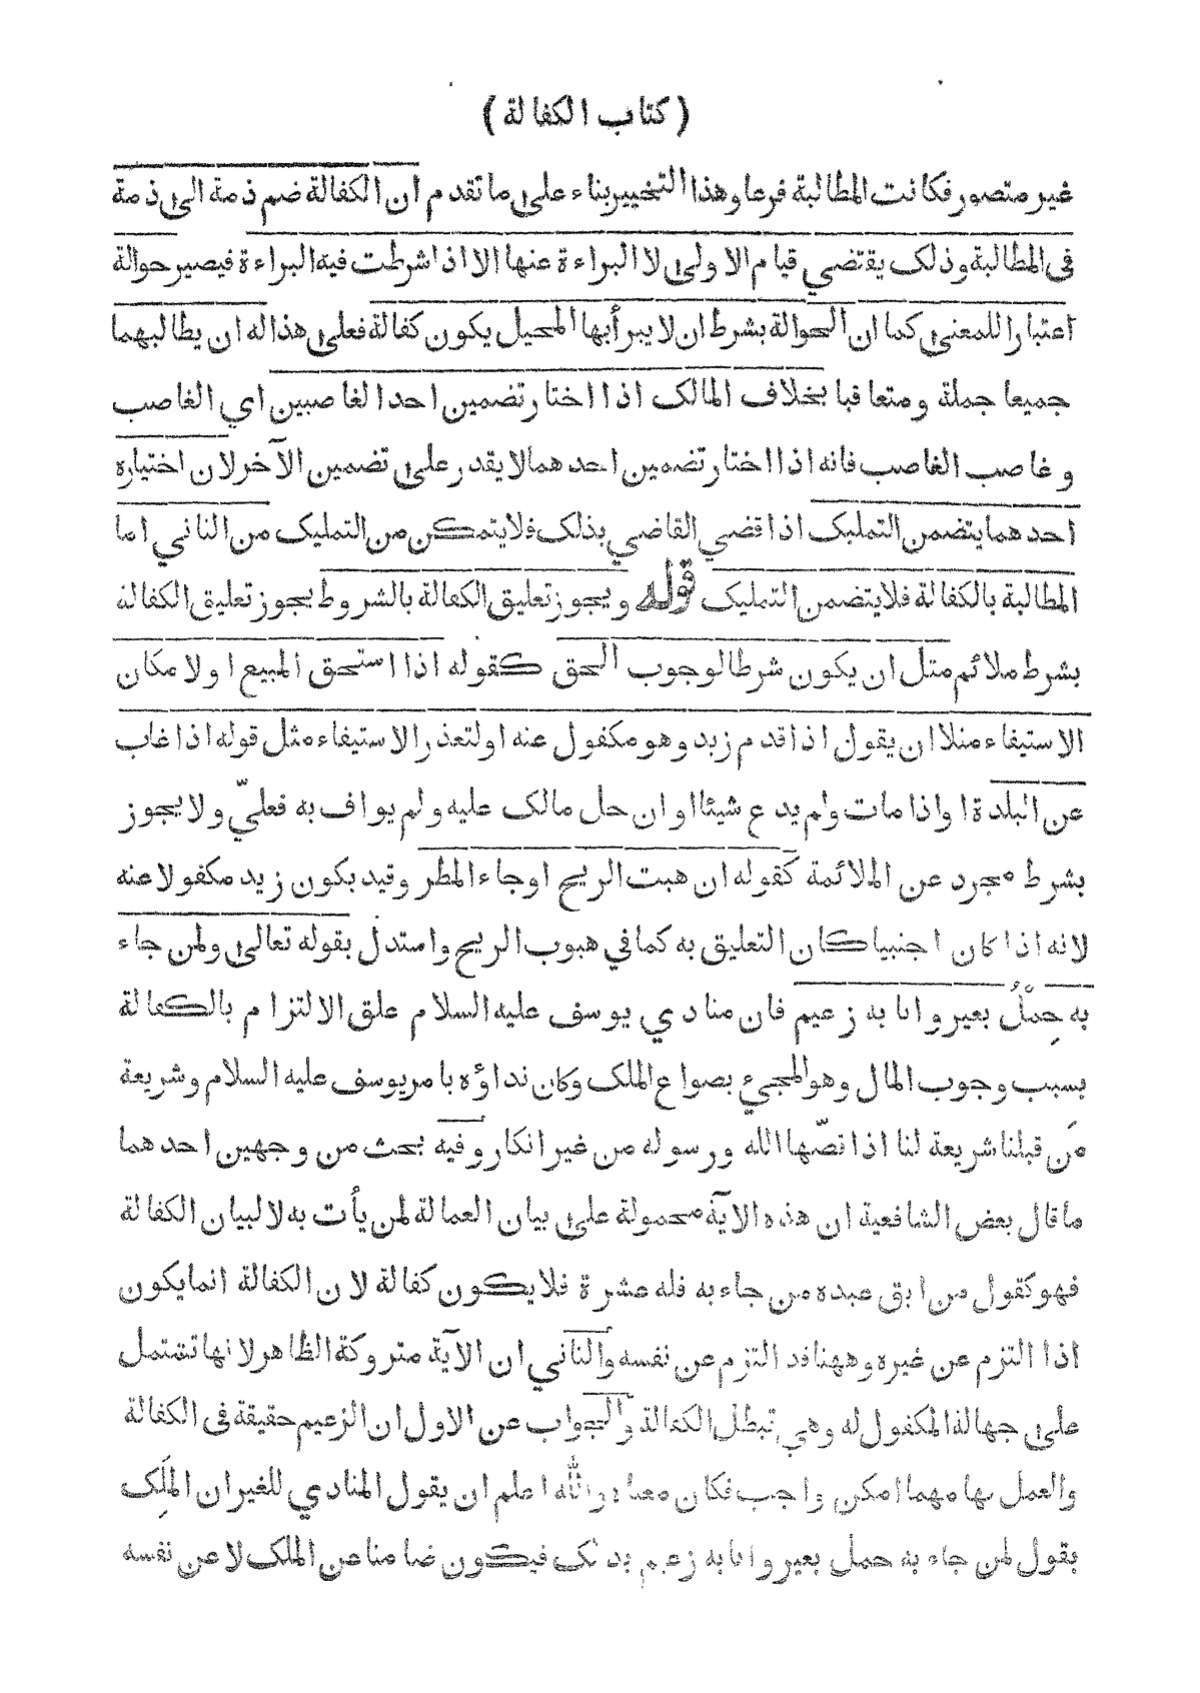 (كتاب الكفالة)
غير متصور فكانت المطالبة فرعا وهذا التخيير بناء على ما تقدم ان الكفالة ضم ذمة الى ذمة
فى المطالبة وذلك يقتضي قيام الاولى لا البراءة عنها الا اذا شرطت فيه البراءة فيصير حوالة
اعتبارا للمعنى كما ان الحوالة بشرط ان لا يبرأ بها المحيل يكون كفالة فعلى هذا له ان يطالبهما
جميعا جملة ومتعاقبا بخلاف المالك اذا اختار تضمين احد الغاصبين اي الغاصب
وغاصب الغاصب فانه اذا اختار تضمين احدهما لا يقدر على تضمين الآخر لان اختياره
احدهما يتضمن التمليك اذا قضي القاضي بذلك فلا يتمكن من التمليك من الثاني اما
المطالبة بالكفالة فلا يتضمن التمليك قوله ويجوز تعليق الكفالة بالشروط يجوز تعليق الكفالة
بشرط ملائم مثل ان يكون شرطا لوجوب الحق كقوله اذا استحق المبيع او لا مكان
الاستيفاء مثلا ان يقول اذا قدم زيد وهو مكفول عنه او لتعذر الاستيفاء مثل قوله اذا غاب
عن البلدة او اذا مات ولم يدع شيئا او ان حل مالك عليه ولم يواف به فعليّ ولا يجوز
بشرط مجرد عن الملائمة كقوله ان هبت الريح او جاء المطر وقيد بكون زيد مكفولا عنه
لانه اذا كان اجنبيا كان التعليق به كما في هبوب الريح واستدل بقوله تعالى ولمن جاء
به حِمْلُ بعير وانا به زعيم فان منادي يوسف عليه السلام علق الالتزام بالكفالة
بسبب وجوب المال وهو المجيء بصواع الملك وكان نداؤه بامر يوسف عليه السلام وشريعة
مَن قبلنا شريعة لنا اذا نصّها الله ورسوله من غير انكار وفيه بحث من وجهين احدهما
ما قال بعض الشافعية ان هذه الآية محمولة على بيان العمالة لمن يأت به لا لبيان الكفالة
فهو كقول من ابق عبده من جاء به فله عشرة فلا يكون كفالة لان الكفالة انما يكون
اذا التزم عن غيره وههنا قد التزم عن نفسه والثاني ان الآية متروكة الظاهر لانها تشتمل
على جهالة المكفول له وهي تبطل الكفالة والجواب عن الاول ان الزعيم حقيقة فى الكفالة
والعمل بها مهما امكن واجب فكان معناه والله اعلم ان يقول المنادي للغير ان الملَِك
يقول لمن جاء به حمل بعير وانا به زعيم بذلك فيكون ضامنا عن الملك لا عن نفسه